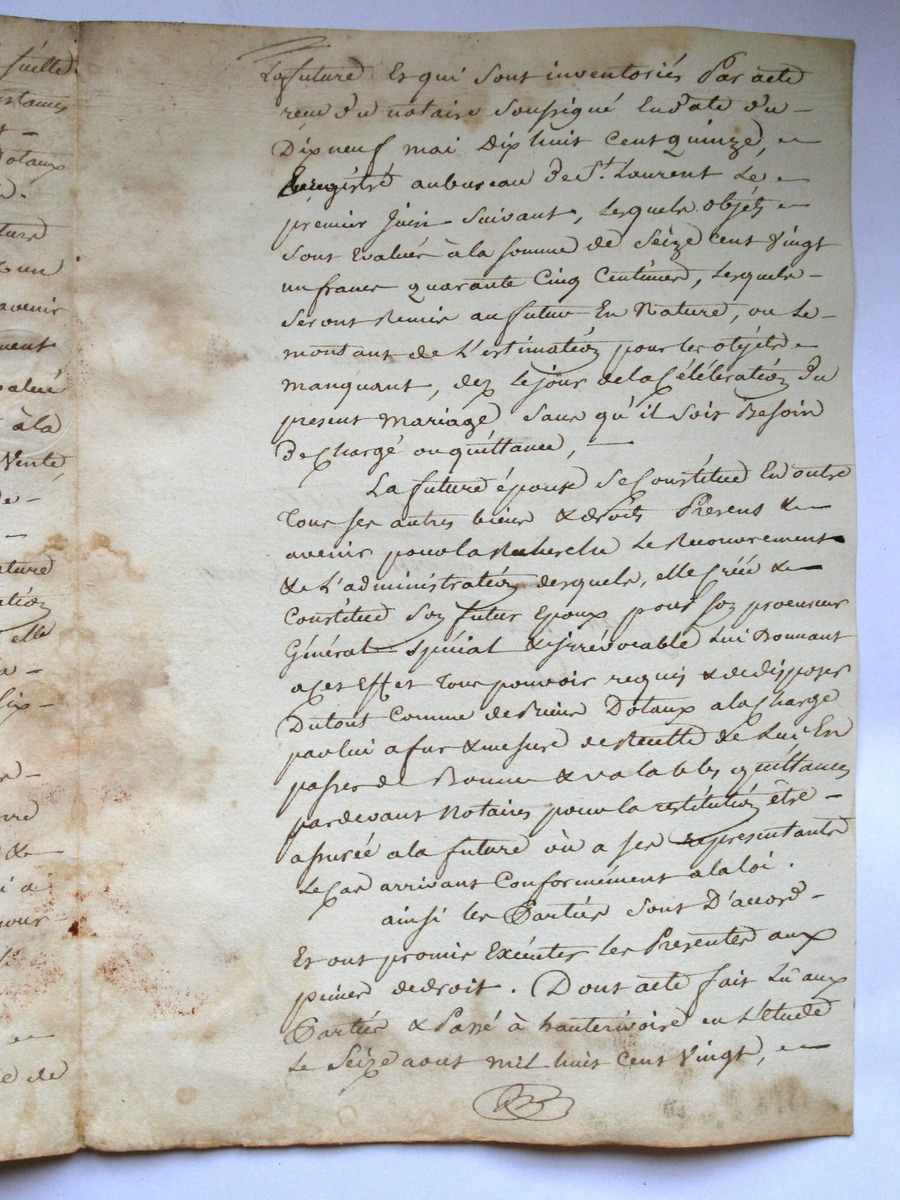 feuille
dotaux
avenir
à la
Vente
de -
elle
-
&
de
la future Et qui sont inventoriés Par acte
reçu du notaire soussigné En date du -
Dix neuf mai dix huit Cent quinze,
Enregistré au bureau De St. Laurent Le
premier Juin suivant, Lesquels objets
sont Evalués à la somme de Seize cent Vingt
un francs quarante Cinq Centimes, Lesquels -
seront Remis au futur En Nature, ou Le -
montant de L'estimation pour les objets
manquant, dez Le jour de la Célébration Du
présent Mariage sans qu'il soit Besoin
De Chargé ou quittance, -
La future épouse se Constitue En outre
Tous ses autres biens & droits Presens &
avenir pour la Recherche Le Recouvrement
& L'administration desquels, elle Créé &
Constitue Son futur Epoux pour son procureur
Général spécial & irrévocable Lui Donnant
a Cet Effet Tous pouvoir requis & de disposer
Du tout Comme de Biens Dotaux a la Charge
par lui a fur & mesure de Recette de Lui En
passer de Bonnes & valables quittances
pardevant Notaires pour la restitution être -
assurée a la future où a ses représentants
Le Cas arrivant Conformément a la loi.
ainsi les Parties sont D'accord -
Et ont promis Exécuter les Présentes aux
peines de droit. Dont acte fait Lu aux
Parties & Passé à hauterivoire en L'étude
Le Seize aout mil huit Cent Vingt,